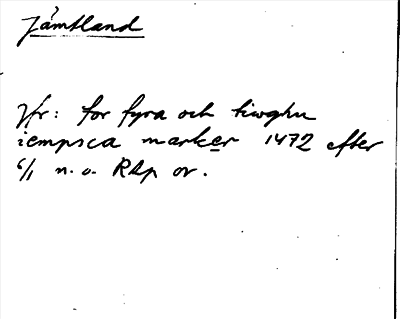 Jämtland
Jfr: for fyra och tiwghu
iempsca marker 1472 efter
6/1 n. o. RAp or.